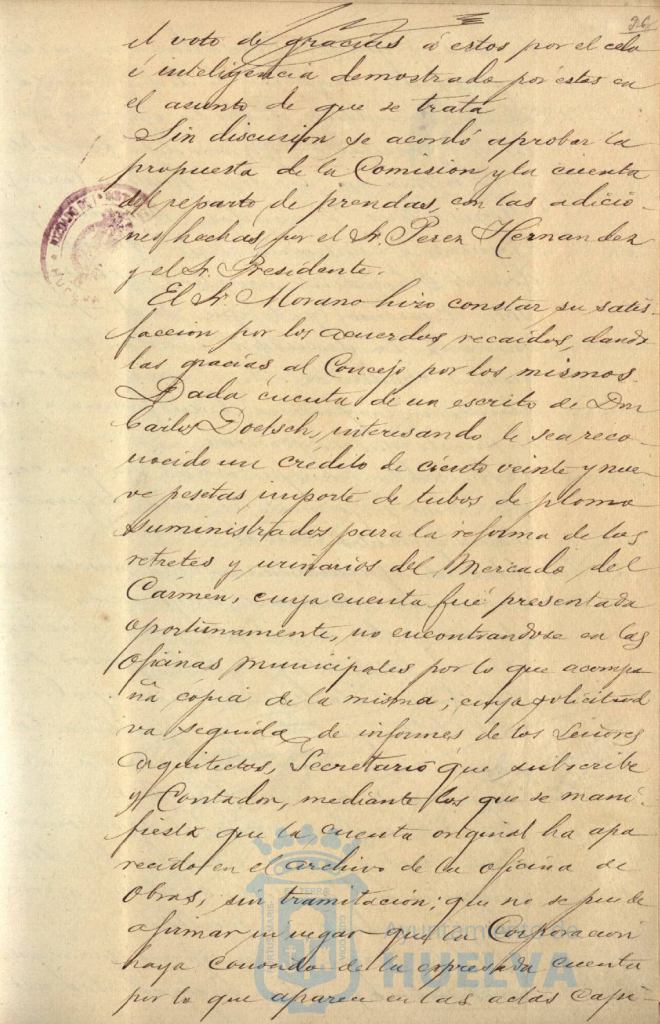 26
el voto de gracias á estos por el celo
é inteligencia demostrado por éstos en
el asunto de que se trata
Sin discusion se acordó aprobar la
propuesta de la Comision y la cuenta
del reparto de prendas, con las adicio-
nes hechas por el Sr. Perez Hernandez
y el Sr. Presidente.
El Sr. Morano hizo constar su satis-
faccion por los acuerdos recaidos, dando
las gracias al Concejo por los mismos.
Dada cuenta de un escrito de Don
Carlos Doetsch, interesando le sea reco-
nocido un crédito de ciento veinte y nue-
ve pesetas, importe de tubos de plomo
suministrados para la reforma de los
retretes y urinarios del Mercado del
Cármen, cuya cuenta fué presentada
oportunamente, no encontrandose en las
oficinas municipales por lo que acompa
ña cópia de la misma; cuya solicitud
va seguida de informes de los Señores
Arquitectos, Secretario que subscribe
y Contador, mediante los que se mani-
fiesta que la cuenta original ha apa
recido en el archivo de la oficina de
Obras, sin tramitación; que no se puede
afirmar ni negar que la Corporacion
haya conocido de la expresada cuenta
por lo que aparece en las actas Capi-
Ayuntamiento de
HUELVA